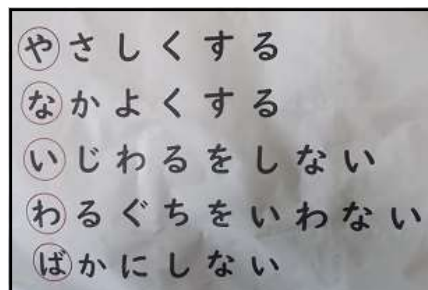 やさしくする
なかよくする
いじわるをしない
わるぐちをいわない
ばかにしない